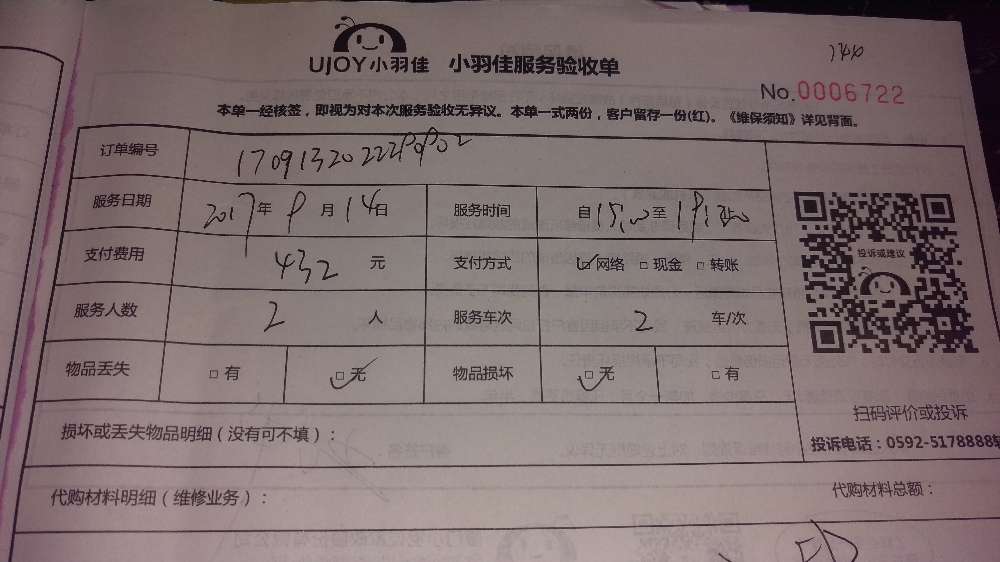 UJOY小羽佳 小羽佳服务验收单
No.0006722
本单一经核签，即视为对本次服务验收无异议。本单一式两份，客户留存一份(红)。《维保须知》详见背面。
订单编号
服务日期 2017年 9月 14日 服务时间 自15:00至
支付费用 432 元 支付方式 □网络 □现金 □转账
服务人数 2 人 服务车次 2 车/次
物品丢失 □有 □无 物品损坏 □无 □有
投诉或建议
扫码评价或投诉
投诉电话：0592-5178888转
损坏或丢失物品明细（没有可不填）：
代购材料明细（维修业务）： 代购材料总额：